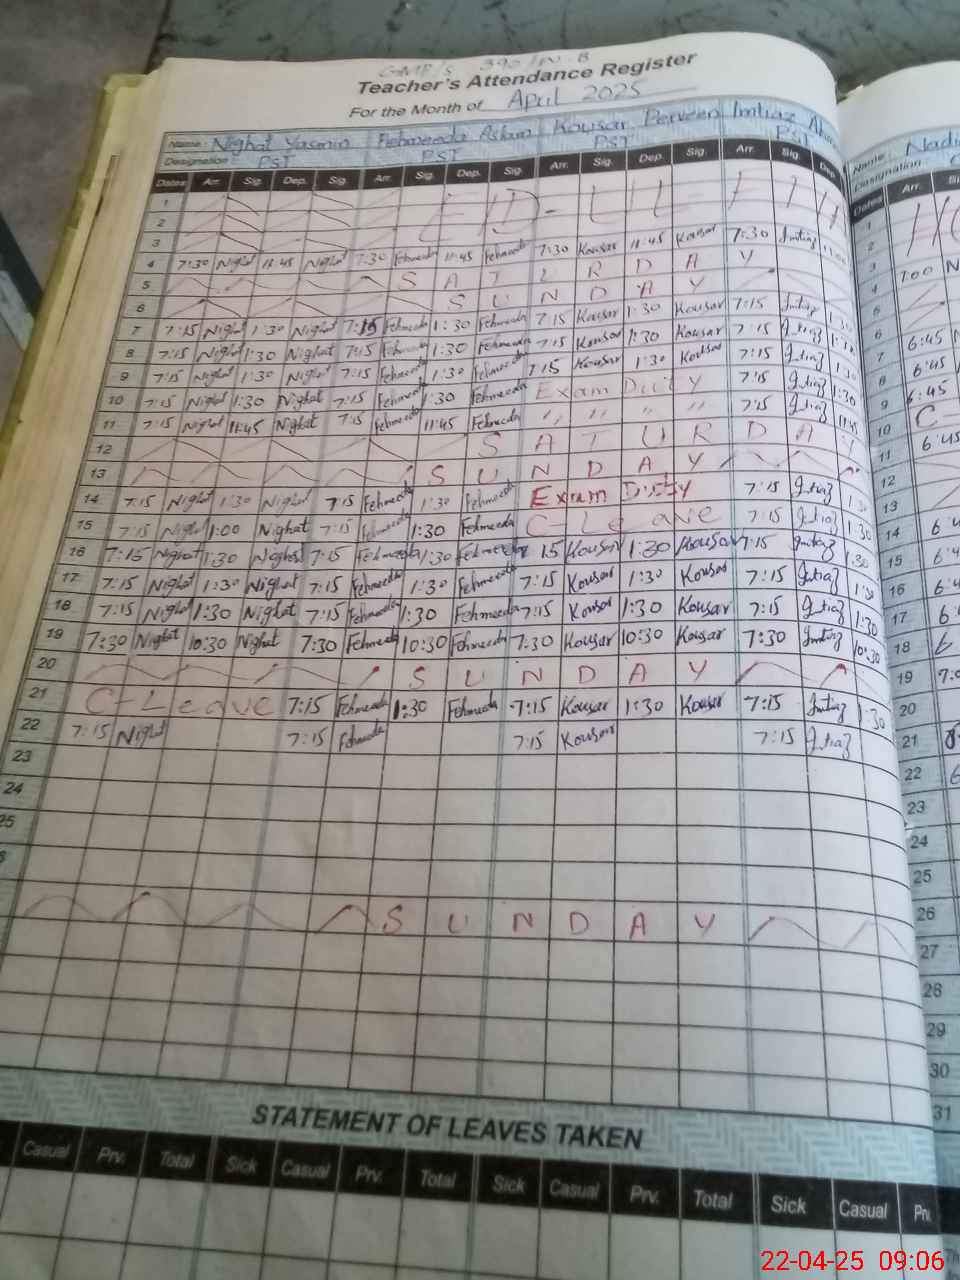 Teacher's Attendance Register
For the Month of April 2025
Name: Nighat Yasmin Fehmeeda Aslam Kousar Perveen Imtiaz
Designation: PST PST PST PST
Dates Arr. Sig. Dep. Sig. Arr. Sig. Dep. Sig. Arr. Sig. Dep. Sig. Arr. Sig. Dep.
1
2
3
4 7:30 Nighat 11:45 Nighat 7:30 Fehmeeda 11:45 Fehmeeda 7:30 Kousar 11:45 Kousar 7:30 Imtiaz
5 SATURDAY
6 SUNDAY
7 7:15 Nighat 1:30 Nighat 7:15 Fehmeeda 1:30 Fehmeeda 7:15 Kousar 1:30 Kousar 7:15 Imtiaz 1:30
8 7:15 Nighat 1:30 Nighat 7:15 Fehmeeda 1:30 Fehmeeda 7:15 Kousar 1:30 Kousar 7:15 Imtiaz 1:30
9 7:15 Nighat 1:30 Nighat 7:15 Fehmeeda 1:30 Fehmeeda 7:15 Kousar 1:30 Kousar 7:15 Imtiaz 1:30
10 7:15 Nighat 1:30 Nighat 7:15 Fehmeeda 1:30 Fehmeeda Exam Duty 7:15 Imtiaz 1:30
11 7:15 Nighat 11:45 Nighat 7:15 Fehmeeda 11:45 Fehmeeda " " " " 7:15 Imtiaz 11:45
12 SATURDAY
13 SUNDAY
14 7:15 Nighat 1:30 Nighat 7:15 Fehmeeda 1:30 Fehmeeda Exam Duty 7:15 Imtiaz 1:30
15 7:15 Nighat 1:00 Nighat 7:15 Fehmeeda 1:30 Fehmeeda C-Leave 7:15 Imtiaz 1:30
16 7:15 Nighat 1:30 Nighat 7:15 Fehmeeda 1:30 Fehmeeda 7:15 Kousar 1:30 Kousar 7:15 Imtiaz 1:30
17 7:15 Nighat 1:30 Nighat 7:15 Fehmeeda 1:30 Fehmeeda 7:15 Kousar 1:30 Kousar 7:15 Imtiaz 1:30
18 7:15 Nighat 1:30 Nighat 7:15 Fehmeeda 1:30 Fehmeeda 7:15 Kousar 1:30 Kousar 7:15 Imtiaz 1:30
19 7:30 Nighat 10:30 Nighat 7:30 Fehmeeda 10:30 Fehmeeda 7:30 Kousar 10:30 Kousar 7:30 Imtiaz 10:30
20 SUNDAY
21 C-Leave 7:15 Fehmeeda 1:30 Fehmeeda 7:15 Kousar 1:30 Kousar 7:15 Imtiaz 1:30
22 7:15 Nighat 7:15 Fehmeeda 7:15 Kousar 7:15 Imtiaz
23
24
25
SUNDAY
STATEMENT OF LEAVES TAKEN
Casual Prv. Total Sick Casual Prv. Total Sick Casual Prv. Total Sick Casual
Name:
Designation:
Dates Arr.
1
2
3 7:00
4
5
6 6:45
7 6:45
8 6:45
9 C
10 6:45
11
12
13
14
15
16
17
18
19 7:0
20
21
22
23
24
25
26
27
28
29
30
31
22-04-25 09:06